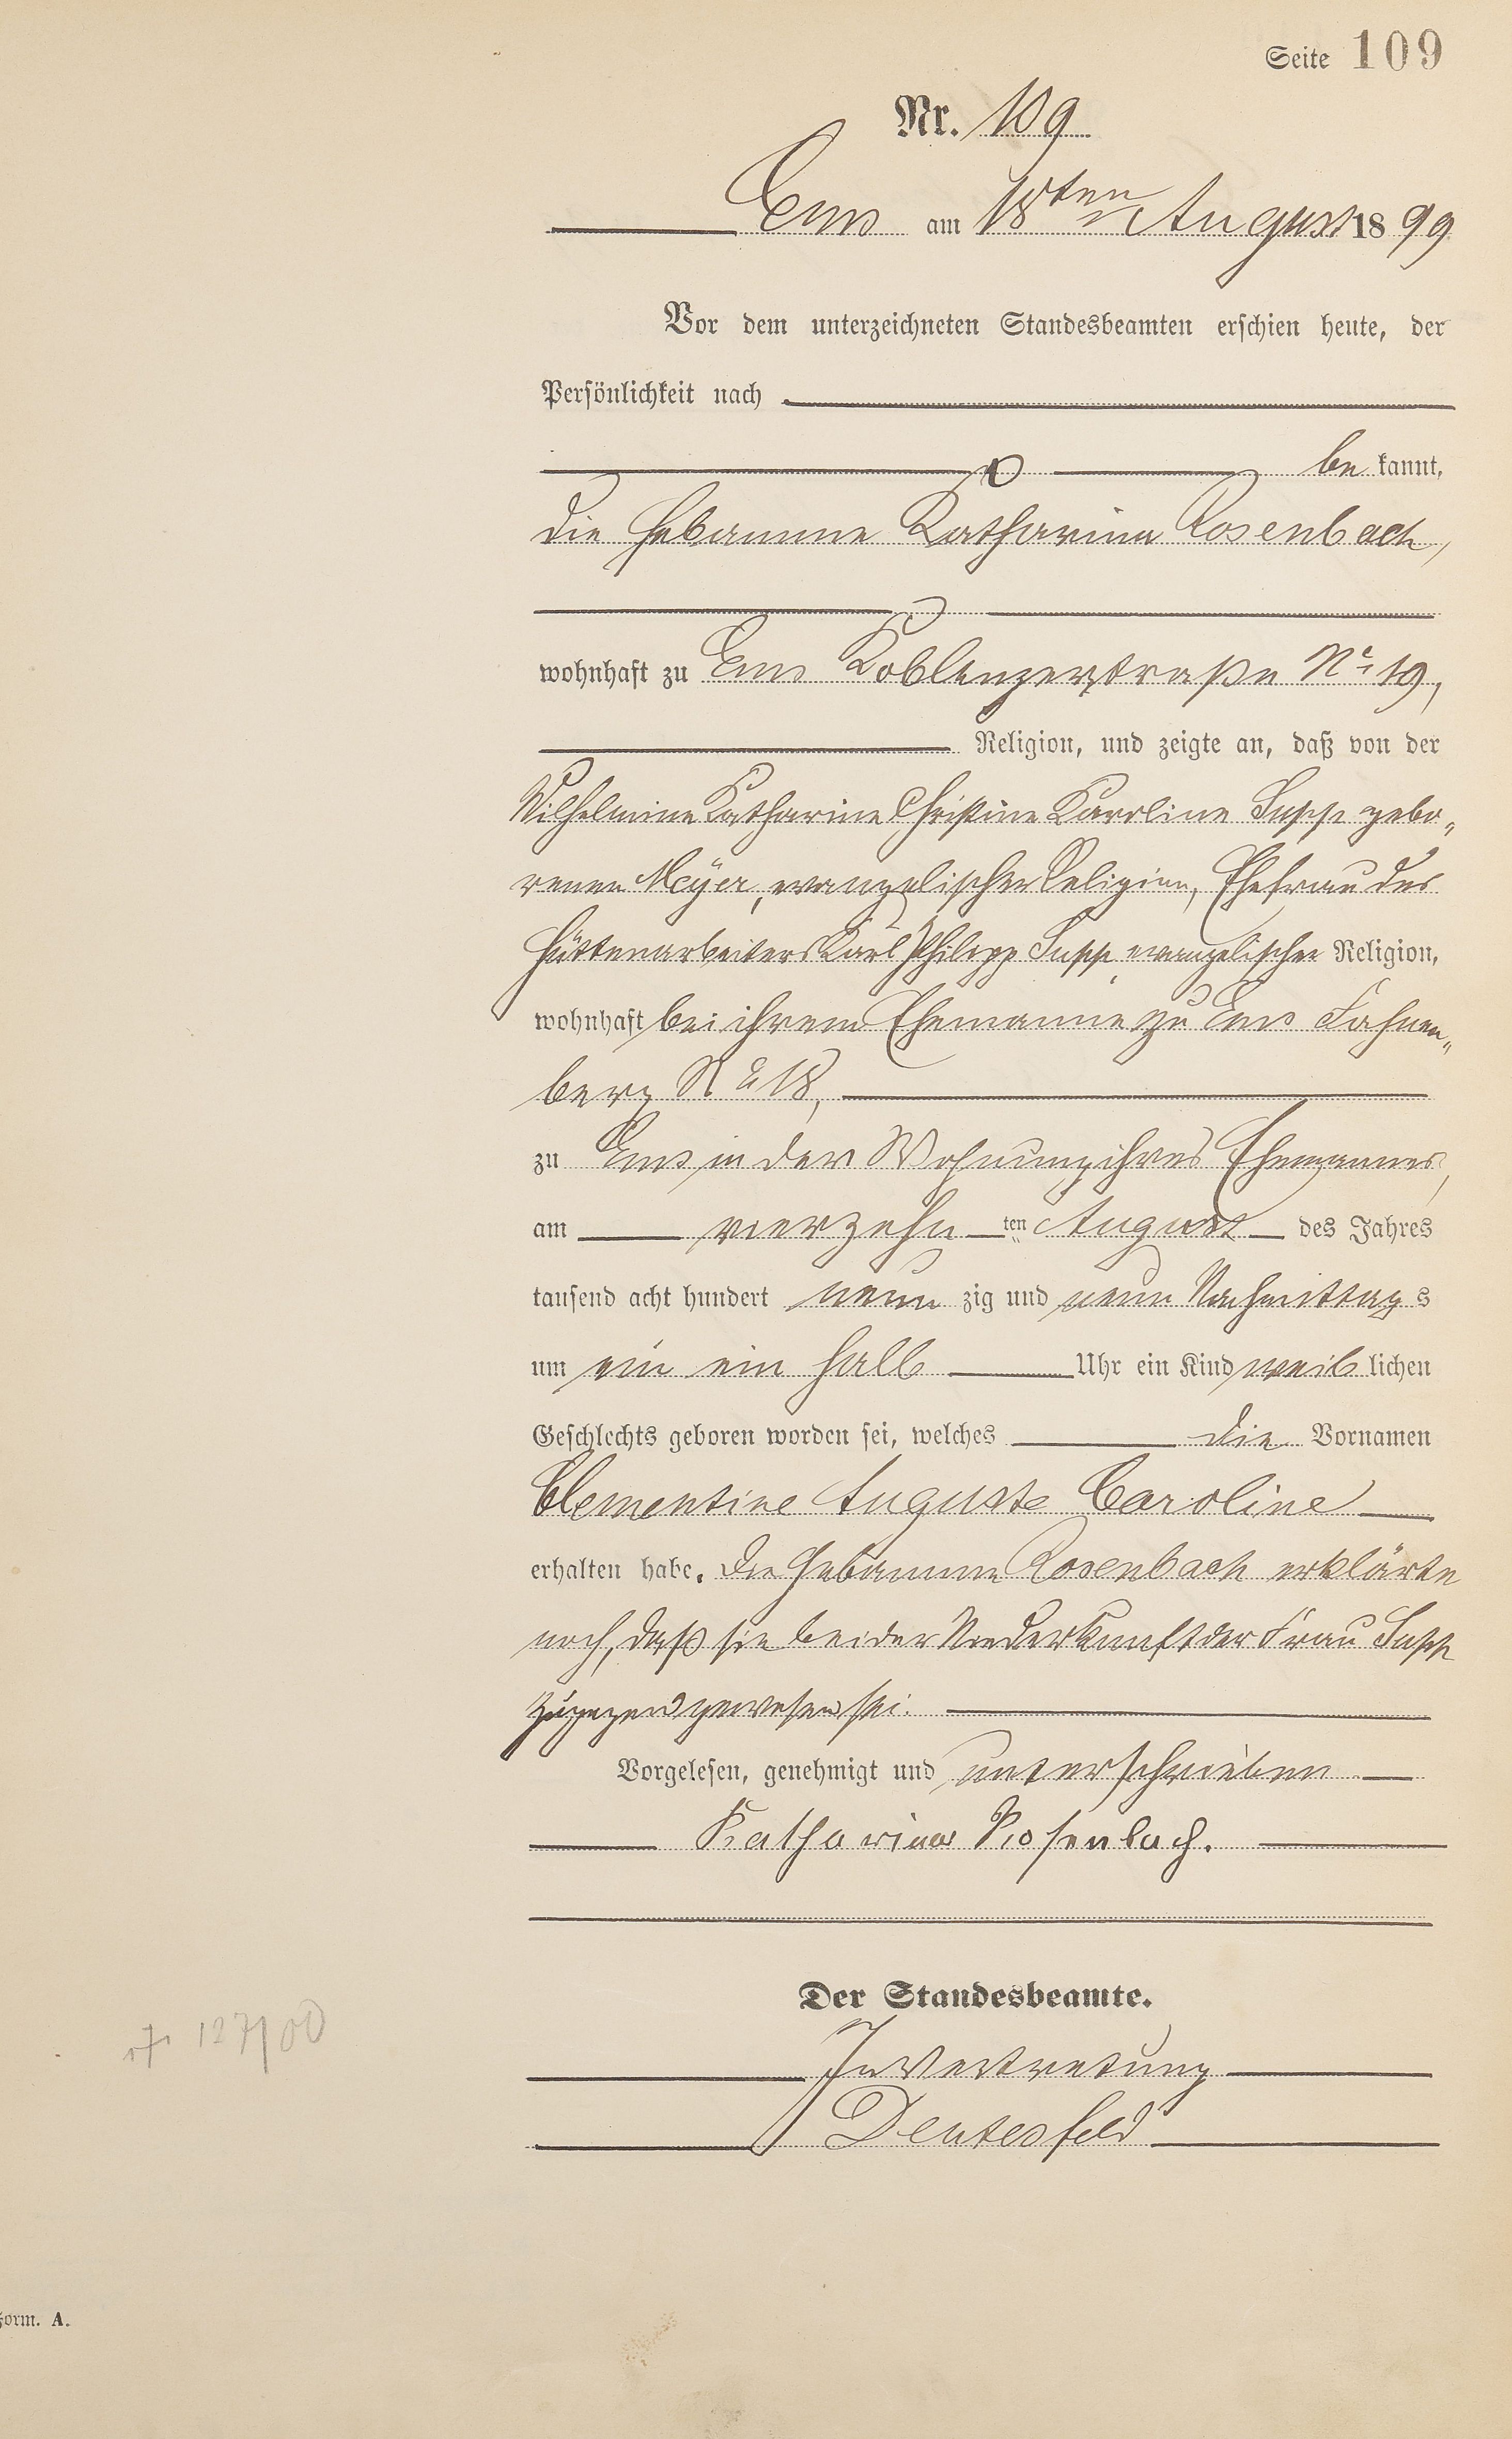 Seite 109
Nr. 109
Ems am 18ten August 1899
Vor dem unterzeichneten Standesbeamten erschien heute, der
Persönlichkeit nach
be kannt,
die Hebamme Katharina Rosenbach,
wohnhaft zu Ems Koblenzerstraße No 19,
Religion, und zeigte an, daß von der
Wilhelmine Katharine Christine Karoline Supp gebo„
renen Meÿer, evangelischer Religion, Ehefrau des
Hüttenarbeiters Karl Philipp Supp evangelischer Religion,
wohnhaft bei ihrem Ehemanne zu Ems Fahnen„
berg No 18,
zu Ems in der Wohnung ihres Ehemannes,
am vierzehn ten August des Jahres
tausend acht hundert neun zig und neun Nachmittag s
um ein ein halb Uhr ein Kind weib lichen
Geschlechts geboren worden sei, welches die Vornamen
Clementine Auguste Caroline
erhalten habe. Die Hebamme Rosenbach erklärte
noch, daß sie bei der Niederkunft der Frau Supp
zugegen gewesen sei.
Vorgelesen, genehmigt und unterschrieben
Katharina Rosenbach.
Der Standesbeamte.
In Vertretung
Deutesfeld
† 127/00
Form. A.